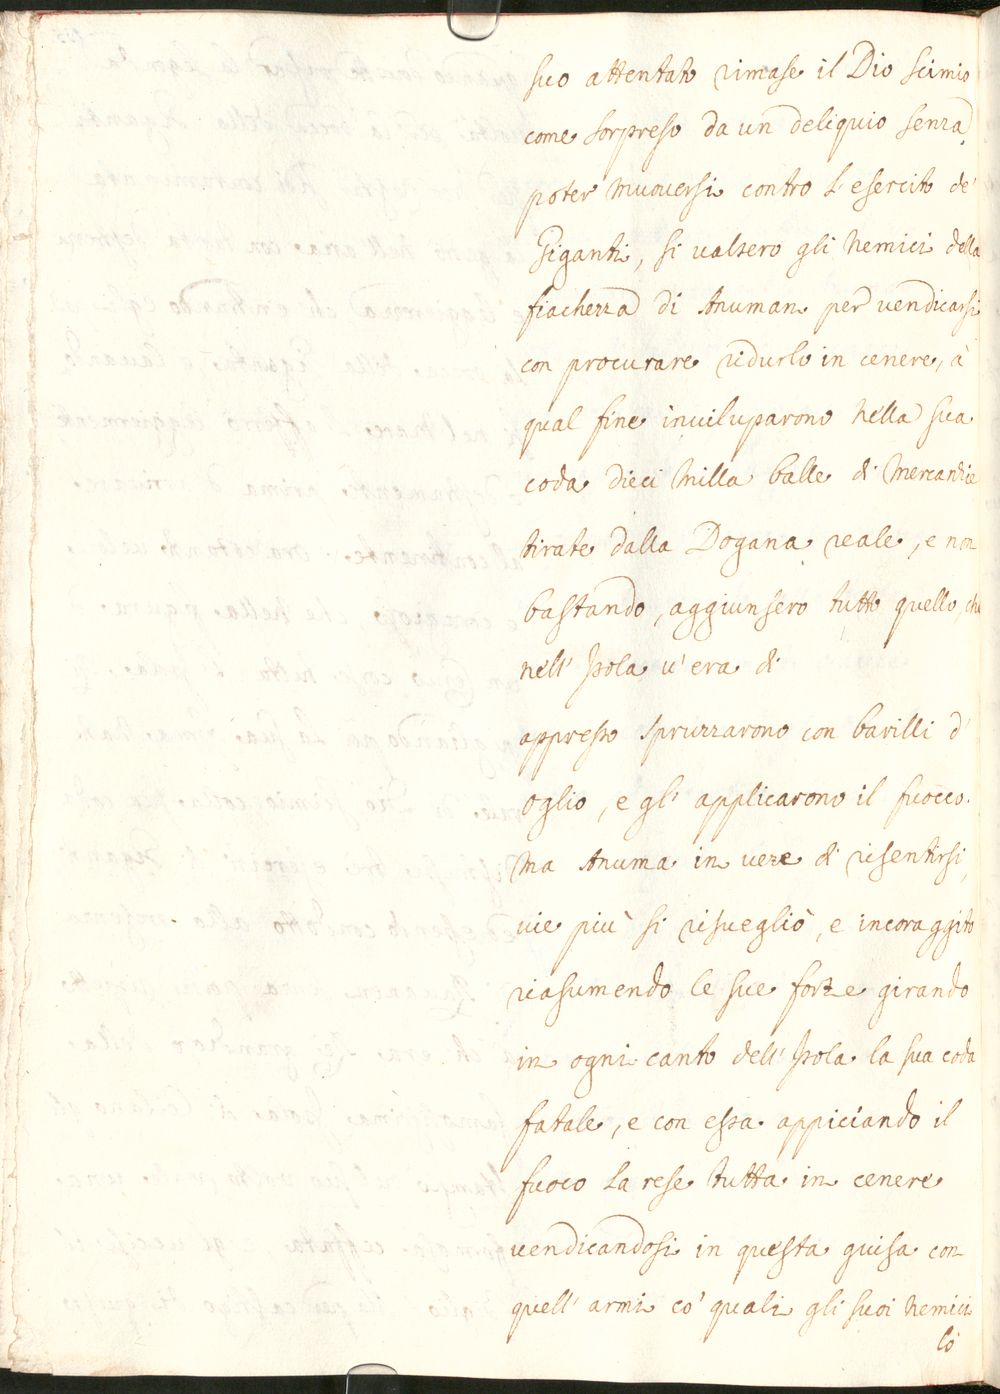 suo attentato rimase il Dio scimio
come sorpreso da un deliquio senza
poter muoversi contro l'esercito de'
Giganti, si valsero gli nemici della
fiachezza di Anuman per vendicarsi
con procurare ridurlo in cenere, à
qual fine inviluparono nella sua
coda dieci milla balle di mercandie
tirate dalla Dogana reale, e non
bastando, aggiunsero tutto quello, che
nell' Isola v'era di
appresso spruzzarono con barilli d'
oglio, e gl' applicarono il fuocco.
ma Anuma in vece di risentirsi,
vie più si risvegliò, e incoraggito
riasumendo le sue forze girando
in ogni canto dell' Isola la sua coda
fatale, e con essa appiciando il
fuoco la rese tutta in cenere
vendicandosi in questa guisa con
quell' armi co' quali gli suoi nemici
lo